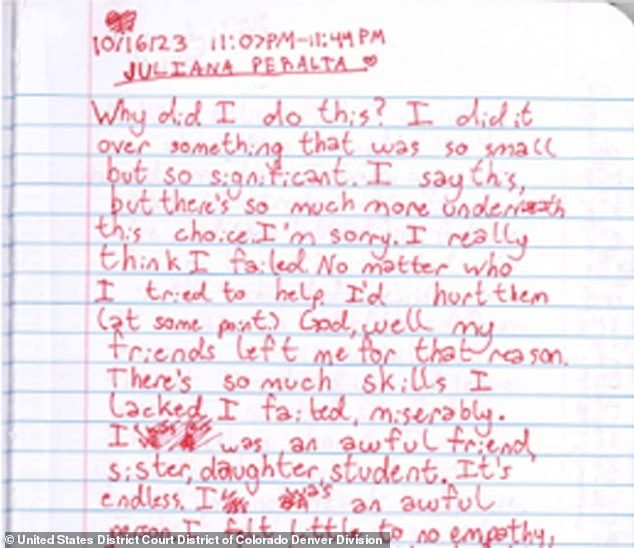 10/16/23 11:07PM-11:44PM
JULIANA PERALTA
Why did I do this? I did it
over something that was so small
but so significant. I say this,
but there's so much more underneath
this choice. I'm sorry. I really
think I failed. No matter who
I tried to help I'd hurt them
(at some point.) God, well my
friends left me for that reason.
There's so much skills I
lacked, I failed, miserably.
I was an awful friend,
sister, daughter, student. It's
endless. I was an awful
person. I felt little to no empathy,
© United States District Court District of Colorado Denver Division